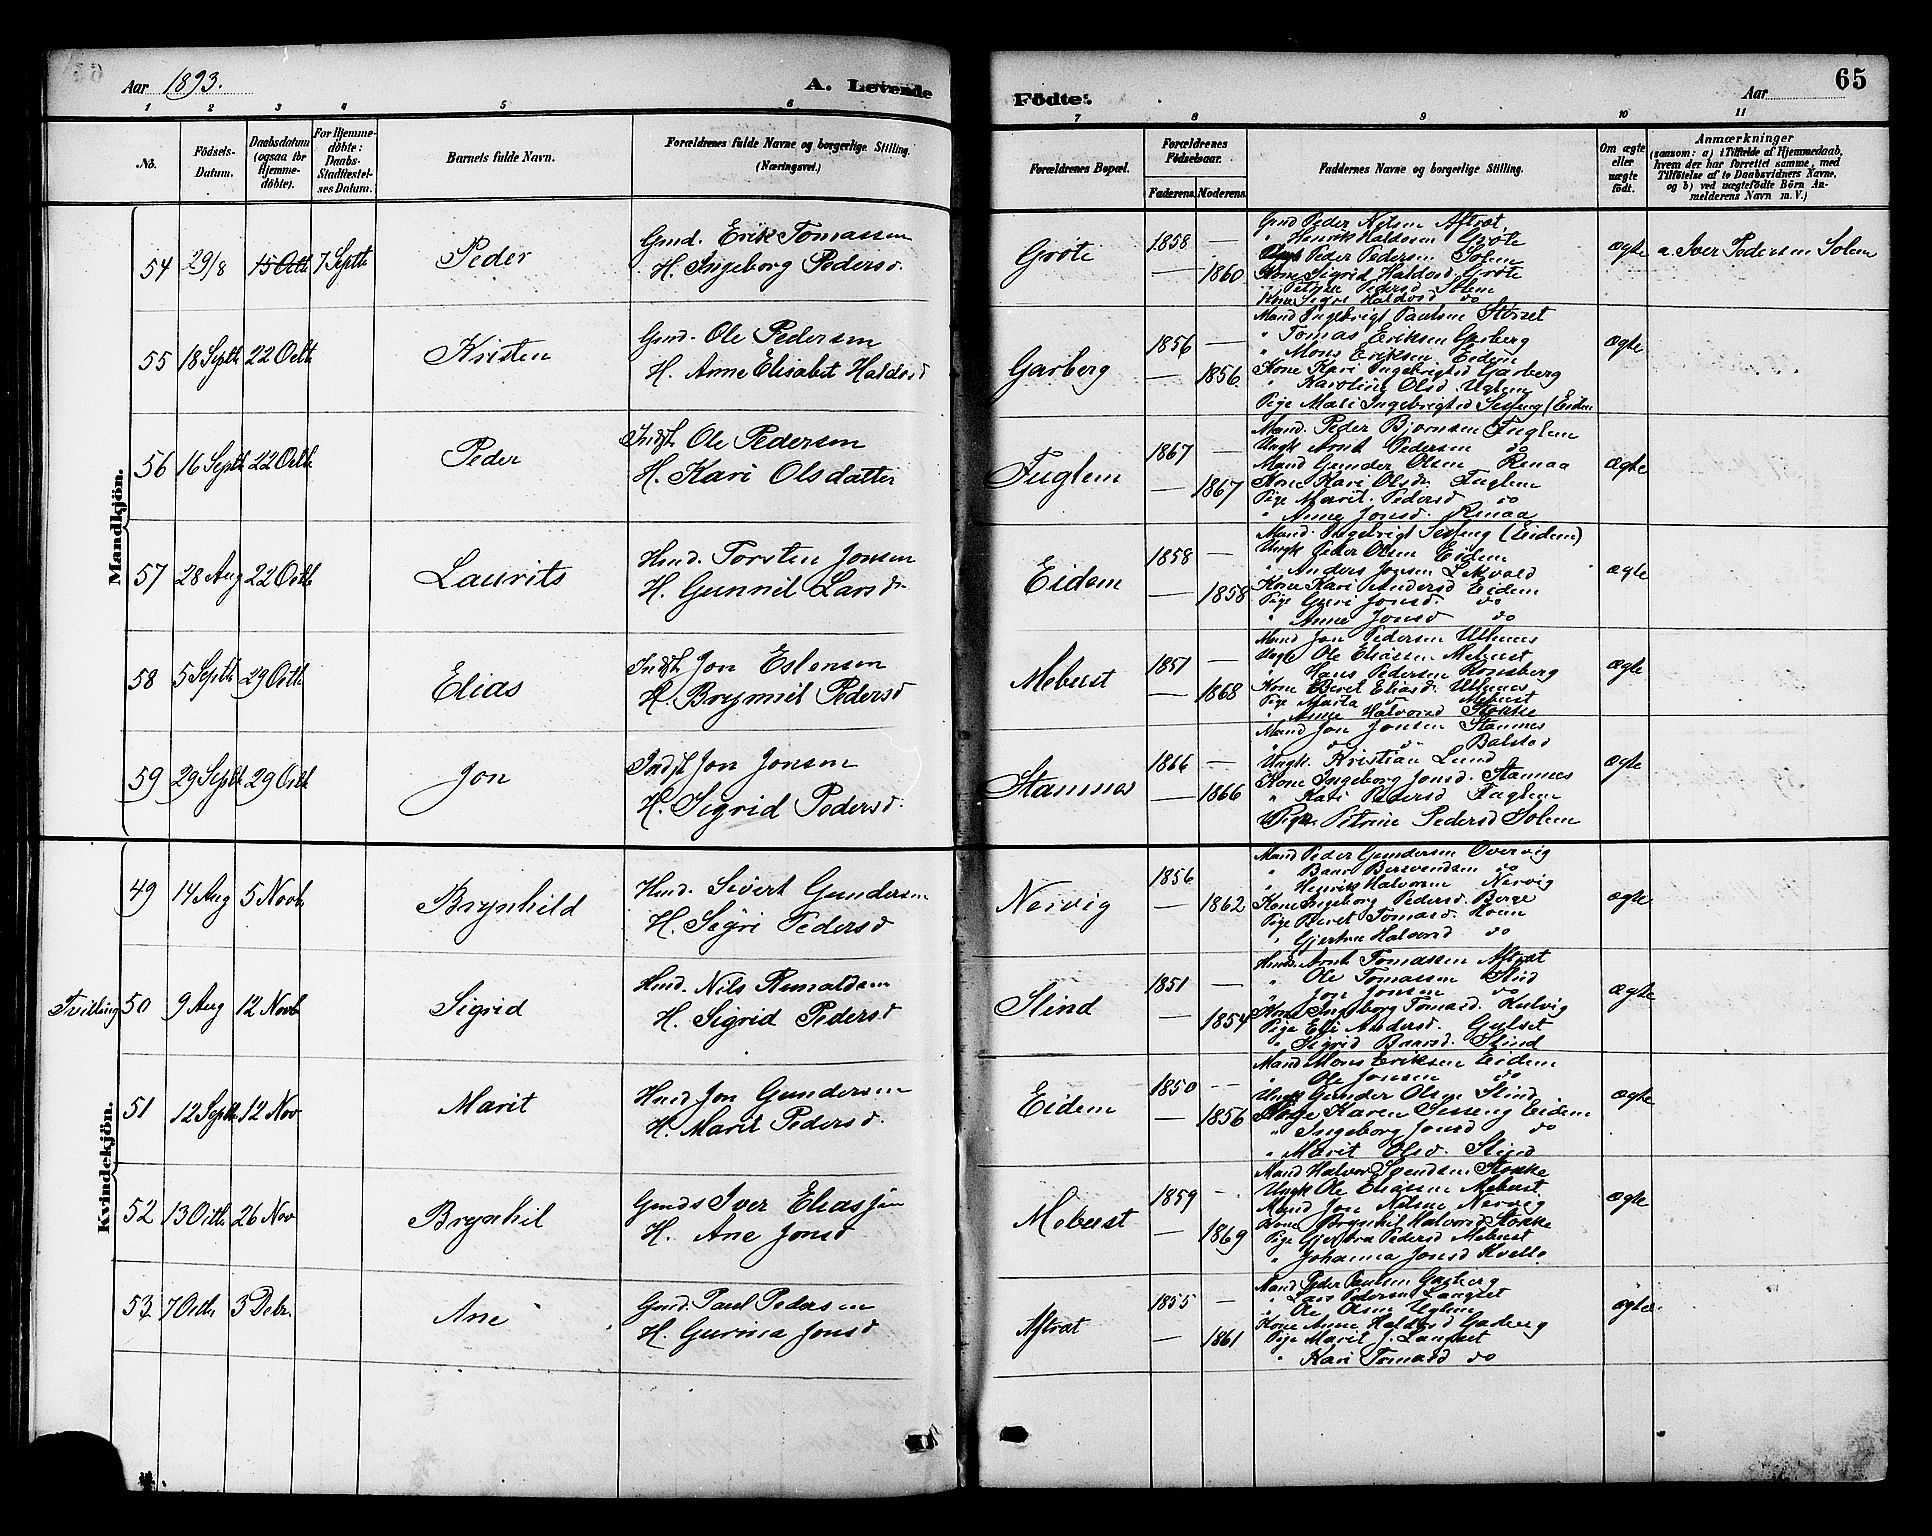 Aar 1893.
A. Levende
Födte.
Aar
65
1 2 3 4 5 6 7 8 9 10 11
No.
Födsels-Datum.
Daabsdatum (ogsaa for Hjemme-döbte).
For Hjemme-döbte: Daabs-Stadfæstel-ses Datum.
Barnets fulde Navn.
Forældrenes fulde Navne og borgerlige Stilling. (Næringsvei.)
Forældrenes Bopæl.
Forældrenes Födselsaar.
Faderens. Moderens.
Faddernes Navne og borgerlige Stilling.
Om ægte eller uægte födt.
Anmærkninger
(saasom: a) i Tilfælde af Hjemmedaab, hvem der har forrettet samme, med Tilföielse af to Daabsvidners Navne, og b) ved uægtefödte Börn An-melderens Navn m. V.)
Mandkjön.
54 29/8 15 Octb 7 Septb Peder
Gmd. Erik Tomassen
H. Ingeborg Pedersd.
Grøte 1858 — — 1860
Gmd Peder Nilsen Aftret
" Henrik Haldosen Grøte
Ungk Peder Pedersen Solem
Kone Sigrid Haldosd Grøte
" Petrine Pedersd Solem
Kone Sigri Haldosd do
ægte a. Iver Pedersen Solem
55 18 Septb 22 Octb Kristen
Gmd. Ole Pedersen
H. Anne Elisabet Haldosd
Garberg 1856 — — 1856.
Mand Ingebrigt Paulsen Størset
" Tomas Eriksen Garberg
" Mons Eriksen Eidem
Kone Kari Ingebrigtsd Garberg
" Karoline Olsd. Uglem
Pige Mali Ingebrigtsd Sesseng (Eidem
ægte
56 16 Septb 22 Octb Peder
Indst. Ole Pedersen
H. Kari Olsdatter
Fuglem 1867 — — 1867
Mand. Peder Bjørnsen Fuglem
Ungk Arnt Pedersen do
Mand Gunder Olsen Renaa
Kone Kari Olsdr. Fuglem
Pige Marit Pedersd do
" Anne Jonsd. Renaa
ægte
57 28 Aug 22 Octb Laurits
Hmd. Torsten Jonsen
H. Gunnil Larsdr
Eidem 1858 — — 1858
Mand. Ingebrigt Sesseng (Eidem)
Ungk Peder Olsen Eidem
" Anders Jonsen Lekvold
Kone Kari Andersd Eidem
Pige Guri Jonsd. do
" Anne Jonsd do
ægte
58 5 Septb 29 Octb Elias
Indst. Jon Estensen
H. Brynnil Pedersd
Mebust 1851 — — 1868
Mand Jon Pedersen Uthnes
Ungk Ole Eliassen Mebust
" Hans Pedersen Ronsberg
Kone Beret Eliasd. Uthnes
Pige Marta " Mebust
" Anne Halvorsd Stokke
ægte
59 29 Septb 29 Octb Jon
Indst Jon Jonsen
H. Sigrid Pedersd.
Stamnes 1866 — — 1866
Mand Jon Jonsen Stamnes
" do do Balstad
Ungk. Kristian Lund
Kone Ingeborg Jonsd. Stamnes
" Kari Pedersd Fuglem
Pige Petrine Pedersd Solem
ægte
Kvindekjön.
49 14 Aug 5 Novb Brynhild
Hmd. Sivert Gundersen
H. Sigri Pedersd
Nervig 1856 — — 1862
Mand Peder Gundersen Overvig
" Baar Bersvendsen do
" Henrik Halvorsen Nervig
Kone Ingeborg Pedersd. Berge
Pige Beret Tomasd. Hoem
" Gjertru Halvorsd do
ægte
Tvilling 50 9 Aug 12 Novb Sigrid
Hmd. Nils Renaldsen
H. Sigrid Pedersd
Slind 1851 — — 1854
Hmd. Arnt Tomassen Aftret
" Ole Tomassen Slind
" Jon Jonsen do
Kone Ingeborg Tomasd. Kulvig
Pige Eli Andersd. Gulset
" Sigrid Baarsd. Slind
ægte
51 12 Septb 12 Nov Marit
Hmd Jon Gundersen
H. Marit Pedersd.
Eidem 1850 — — 1856
Mand Mons Eriksen Eidem
" Ole Jonsen do
Ungk Gunder Olsen Slind
Pige Karen Sesseng Eidem
" Ingeborg Jonsd do
" Marit Olsd. Slind
ægte
52 13 Octb 26 Nov Brynhil
Gmds Iver Eliassen
H. Ane Jonsd
Mebust 1859 — — 1869
Mand Halvor Svendsen Stokke
Ungk Ole Eliassen Mebust.
Mand Jon Nilsen Nervig
Kone Brynhil Halvorsd Stokke
Pige Gjertru Pedersd Mebust
" Johanna Jonsd Kvello
ægte
53 7 Octb 3 Debr. Ane
Gmd. Paul Pedersen
H. Gurina Jonsd
Aftret 1855 — — 1861
Mand Peder Paulsen Garberg
" Lars Pedersen Langset
" Ole Olsen Uglem
Kone Anne Haldosd Garberg
Pige Marit J. Langset
" Kari Tomasd do
ægte